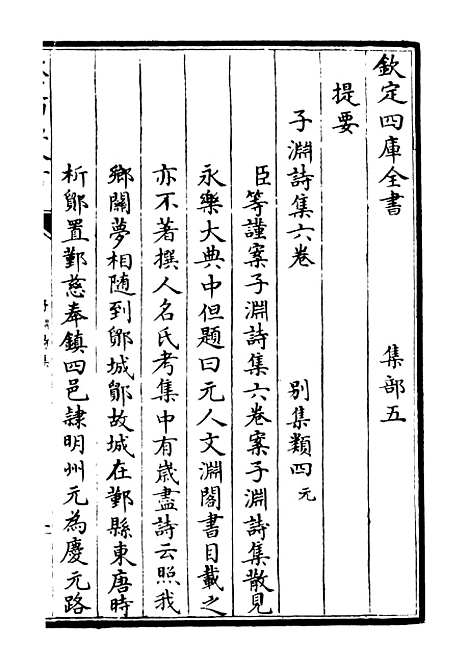 欽定四庫全書　集部五
提要
子淵詩集六卷　別集類四元
臣等謹案子淵詩集六卷案子淵詩集散見
永樂大典中但題曰元人文淵閣書目載之
亦不著撰人名氏考集中有歲盡詩云照我
鄉關夢相隨到鄮城鄮故城在鄞縣東唐時
析鄮置鄞慈奉鎮四邑隷明州元為慶元路